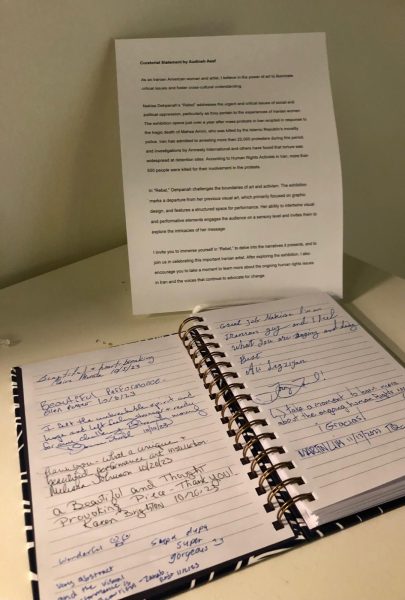 Curatorial Statement by Sudbieh Asaf
As an Iranian American woman and artist, I believe in the power of art to illuminate
critical issues and foster cross-cultural understanding.
Nakisa Dehpanah's "Rebel" addresses the urgent and critical issues of social and
political oppression, particularly as they pertain to the experiences of Iranian women.
The exhibition opens just over a year after mass protests in Iran erupted in response to
the tragic death of Mahsa Amini, who was killed by the Islamic Republic's morality
police. Iran has admitted to arresting more than 22,000 protesters during this period,
and investigations by Amnesty International and others have found that torture was
widespread at detention sites. According to Human Rights Activists in Iran, more than
500 people were killed for their involvement in the protests.
In "Rebel," Dehpanah challenges the boundaries of art and activism. The exhibition
marks a departure from her previous visual art, which primarily focused on graphic
design, and features a structured space for performance. Her ability to intertwine visual
and performative elements engages the audience on a sensory level and invites them to
explore the intricacies of her message.
I invite you to immerse yourself in "Rebel," to delve into the narratives it presents, and to
join us in celebrating this important Iranian artist. After exploring the exhibition, I also
encourage you to take a moment to learn more about the ongoing human rights issues
in Iran and the voices that continue to advocate for change.
Beautiful & heart breaking
10/5/23
Beautiful Performance.
10/8/23
I felt the unbreakable spirit and
hope and left feeling
Thank you - what a unique &
beautiful performance art
10/20/23
a Beautiful and Thought
Provoking Piece - Thank you!
Karen 10/20.23
Wonderful
super
gorgeous
Very abstract
and the visual
Great job Nakisa I'm an
Iranian guy and I feel
what you are saying and doing
Best
Ali
I take a moment to learn more
about the ongoing human rights
¡Gracias!